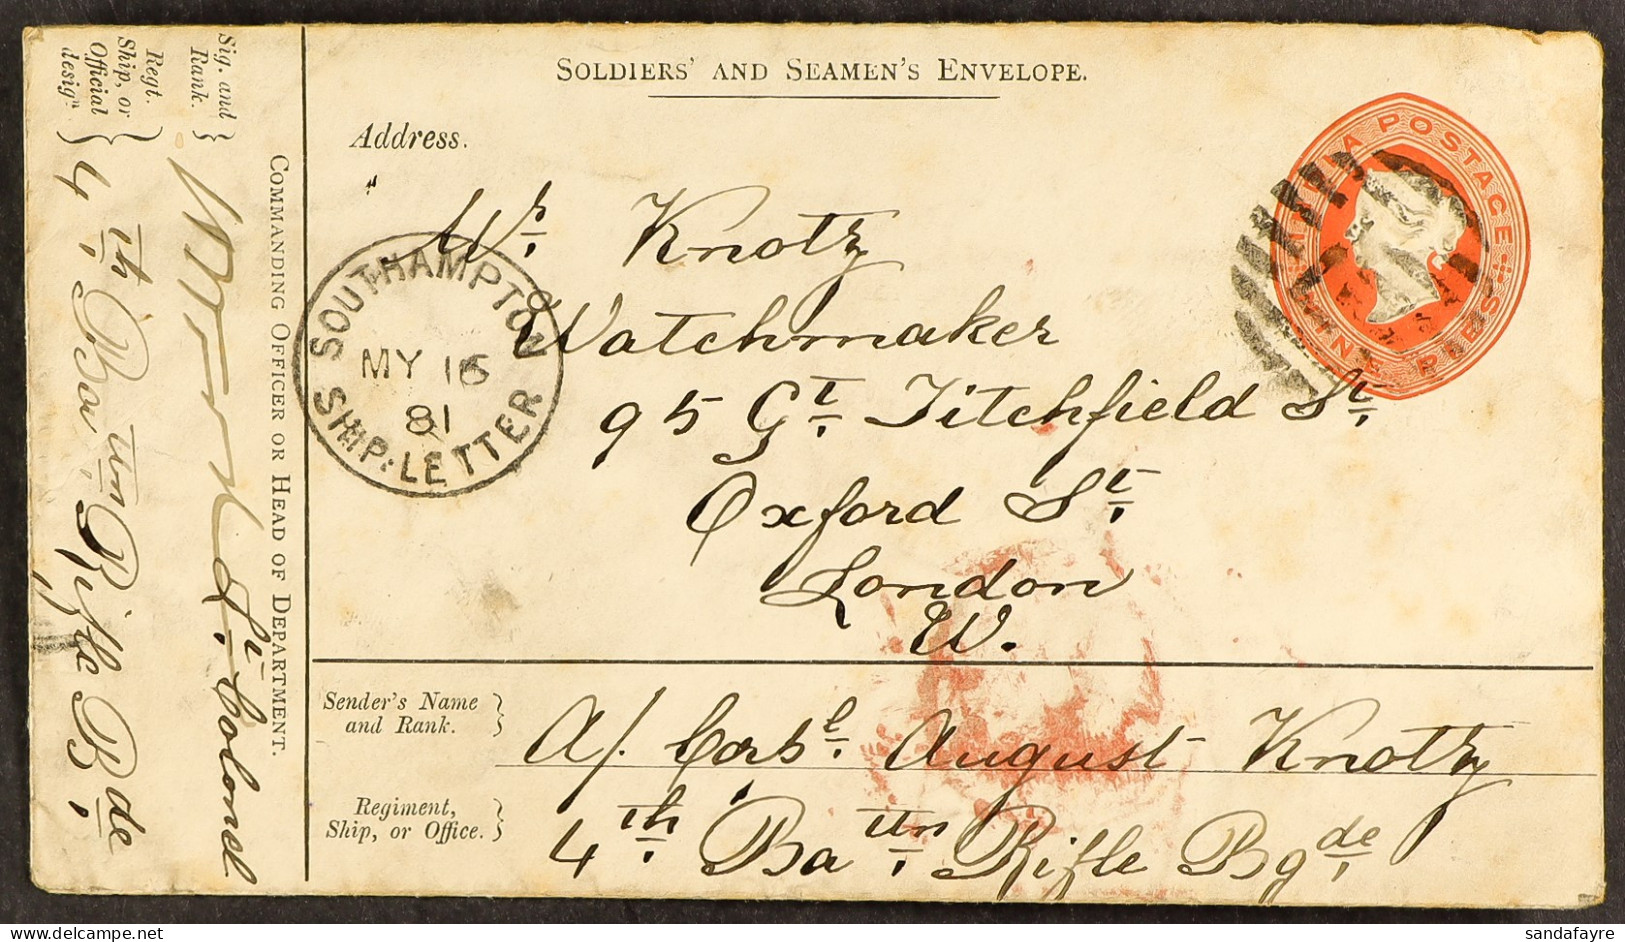 SOLDIERS' AND SEAMEN'S ENVELOPE.
Address.
Mr. Knotz
Watchmaker
95 Gt. Titchfield St.
Oxford St.
London
W.
INDIA POSTAGE
NINE PIES
SOUTHAMPTON
MY 16
81
SHIP-LETTER
Sender's Name
and Rank. }
A/. Corpl. August Knotz
Regiment,
Ship, or Office. }
4th. Batn. Rifle Bgde.
COMMANDING OFFICER OR HEAD OF DEPARTMENT.
Sig. and
Rank. }
Lt. Colonel
Regt.
Ship, or
Official
design. }
4th Batn Rifle Bde
sandafayre